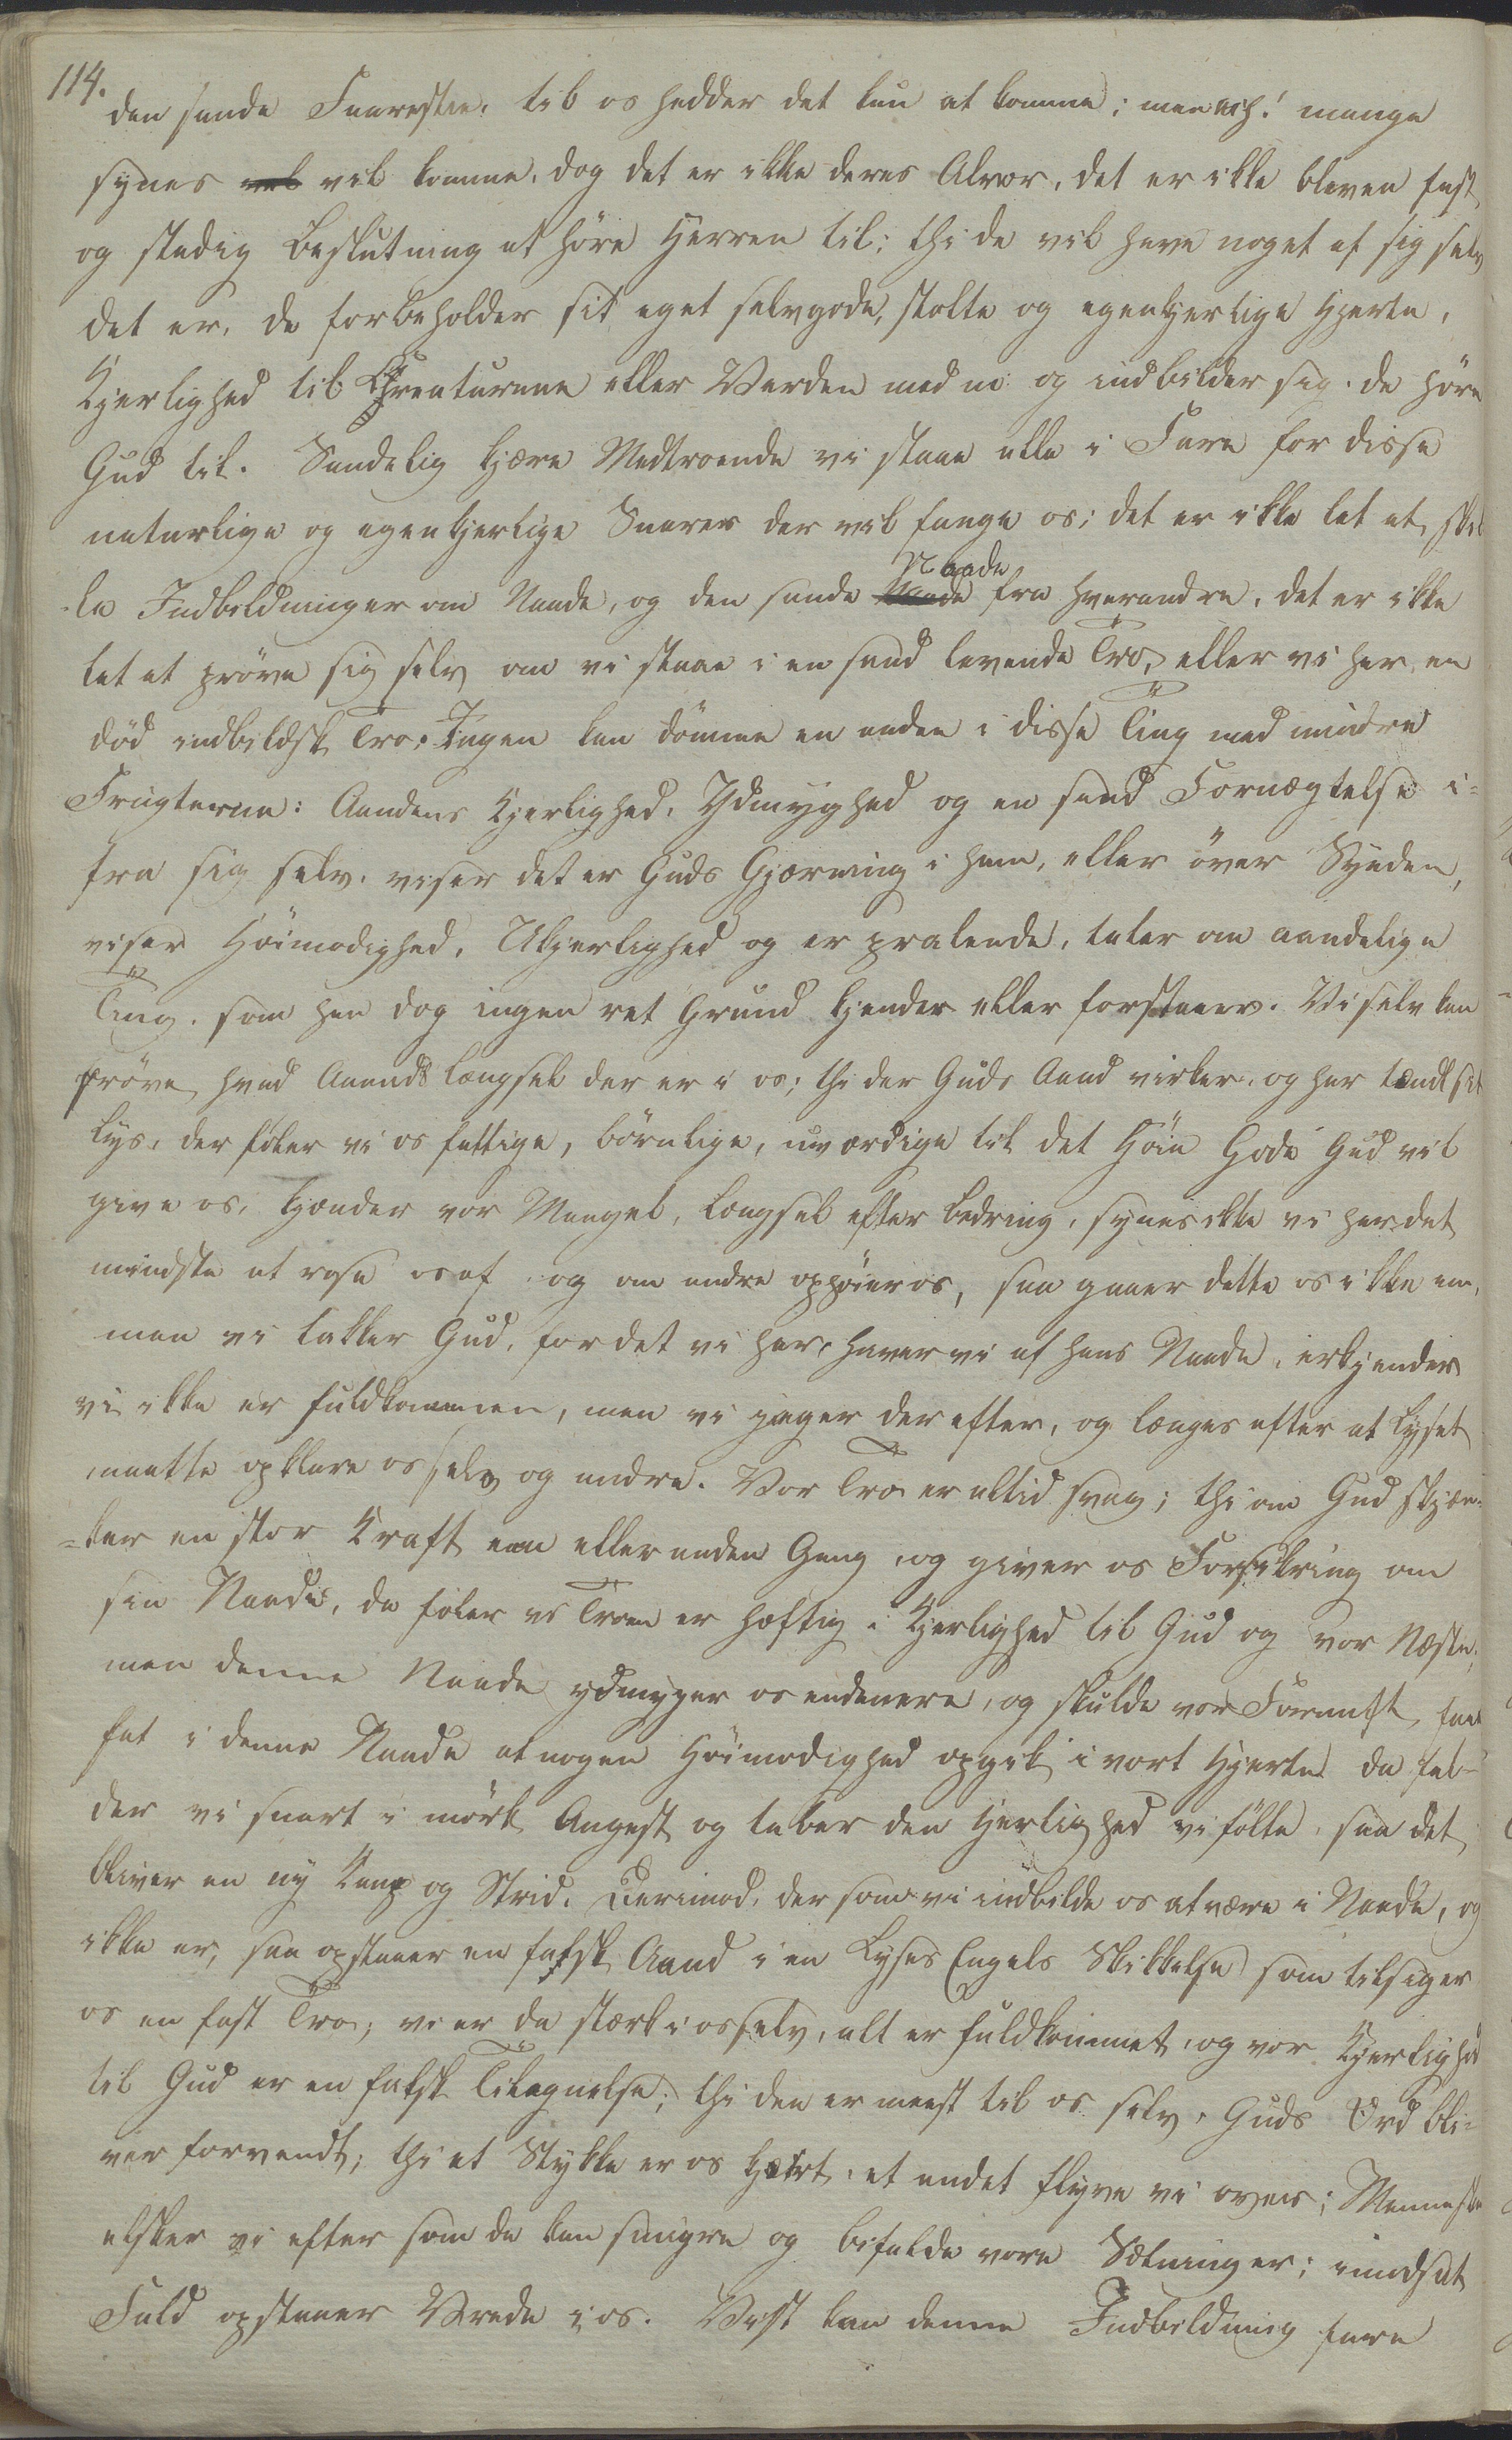 114.
den sande Faaresti. til os hedder det kun at komme; men ach! mange
synes vil komme, dog det er ikke deres Alvor, det er ikke bleven fast
og stadig Beslutning at höre Herren til; thi de vil have noget af sig selv
det er, de forbeholder sit eget selvgode, stolte og egenkjerlige Hjerte,
Kjerlighed til Chreaturene eller Verden med m: og indbilder sig. de höre
Gud til. Sandelig kjære Medtroende vi staae alle i Fare for disse
naturlige og egenkjerlige Snarer der vil fange os; det er ikke let at skil
-le Indbildninger om Naade, og den sande Naade fra hverandre, det er ikke
let at pröve sig selv om vi staae i en sand levende Tro, eller vi har en
död indbildsk Tro. Ingen kan dömme en anden i disse Ting med mindre
Frugterne: Aandens Kjerlighed, Ydmyghed og en sand Fornægtelse i-
fra sig selv. viser det er Guds Gjerning i ham, eller över Synden,
viser Höimodighed, Ukjerlighed og er pralende, taler om aandelige
Ting, som han dog ingen ret Grund kjender eller forstaaer. Vi selv kan
pröve hvad Aands Længsel der er i os; thi der Guds Aand virker, og har tændt sit
Lys, der föler vi os fattige, börnlige, uværdige til det Höie Gode Gud vil
give os, kjender vor Mangel, længsel efter Bedring, synes ikke vi har det
mindste at rose os af og om andre ophöier os, saa gaaer dette os ikke an,
men vi takker Gud, for det vi har, haver vi af hans Naade, erkjender
vi ikke er fuldkommen, men vi jager der efter, og længes efter at Lyset
maatte opklare os selv og andre. Vor Tro er altid svag; thi om Gud skjæn-
-ker en stor Kraft een eller anden Gang, og giver os Forsikring om
sin Naade, da föler vi Troen er hæftig i Kjerlighed til Gud og vor Næste,
men denne Naade ydmyger os endmere, og skulde vor Fornuft faae
fat i denne Naade at nogen Höimodighed opgik i vort Hjerte da fal-
der vi snart i mörk Angest og taber den Kjerlighed vi fölte, saa det
bliver en ny Kamp og Strid. Derimod, der som vi indbilde os at være i Naade, og
ikke er, saa opstaaer en falsk Aand i en Lyses Engels Skikkelse som tilsiger
os en fast Tro; vi er da stærk i os selv, alt er fuldkommet, og vor Kjerlighed
til Gud er en falsk Tilegnelse; thi den er meest til os selv, Guds Ord bli-
ver forvendt; thi et Stykke er os kjært, et andet flyve vi over; Menneske
elsker vi efter som de kan smigre og bifalde vore Sætninger; imodsat
Fald opstaaer Vrede i os. Vist kan denne Indbildning fare